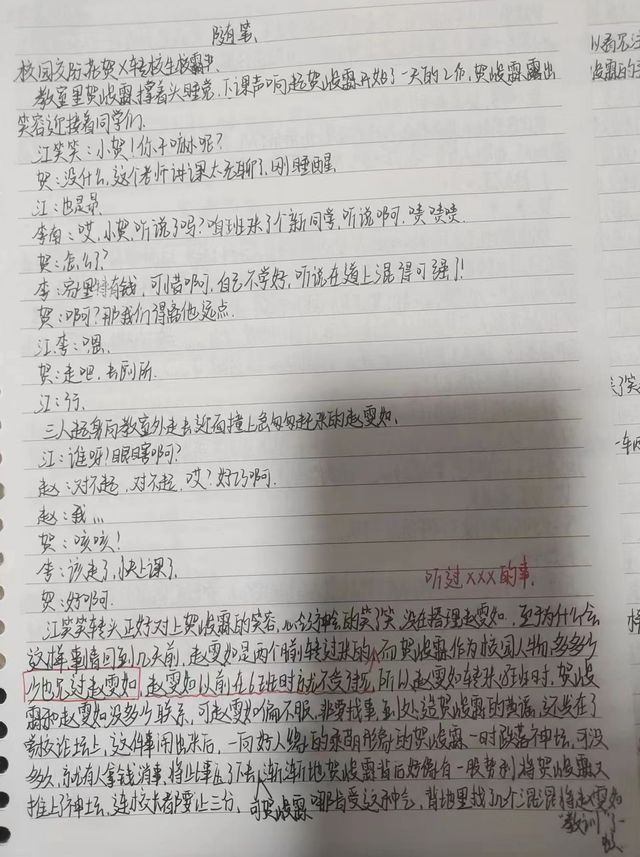 随笔、
校园交际花贺X转校生校霸书
教室里贺浚霖撑着头睡觉,下课声响起贺浚霖开始了一天的工作,贺浚霖露出
笑容迎接着同学们.
江笑笑:小贺!你干嘛呢?
贺:没什么,这个老师讲课太无聊了,刚睡醒.
江:也是昂.
李奋:哎,小贺,听说了吗?咱班来了个新同学,听说啊,啧啧啧.
贺:怎么了?
李:家里特有钱,可惜啊,自己不学好,听说在道上混得可强了!
贺:啊?那我们得离他远点.
江.李:嗯.
贺:走吧,去厕所.
江:行.
三人起身向教室外走去迎面撞上急匆匆赶来的赵雯如.
江:谁呀!眼瞎啊?
赵:对不起,对不起,哎?好巧啊.
赵:我...
贺:咳咳!
李:该走了,快上课了.
贺:好啊.
听过XXX的事.
江笑笑转头正好对上贺浚霖的笑容,心领神会的笑了笑,没在搭理赵雯如.至于为什么会
这样事情回到几天前,赵雯如是两个月前转过来的,而贺浚霖作为校园人物,多多少
少也见过赵雯如,赵雯如以前在6班时就不受待见,所以赵雯如转来班时,贺浚
霖和赵雯如没多少联系,可赵雯如偏不服,非要找事,到处造贺浚霖的黄谣,还发在了
学校论坛上,这件事闹出来后,一向好人缘的贺浚霖一时跌落神坛,可没
多久,就有人拿钱消事,将此事压了下去,渐渐地贺浚霖背后好像有一股势利将贺浚霖又
推上了神坛,连校长都要让三分,可贺浚霖哪肯受这种气,背地里找了几个混混将赵雯如
"教训"了一
以看见
浚霖的
了笑
一车